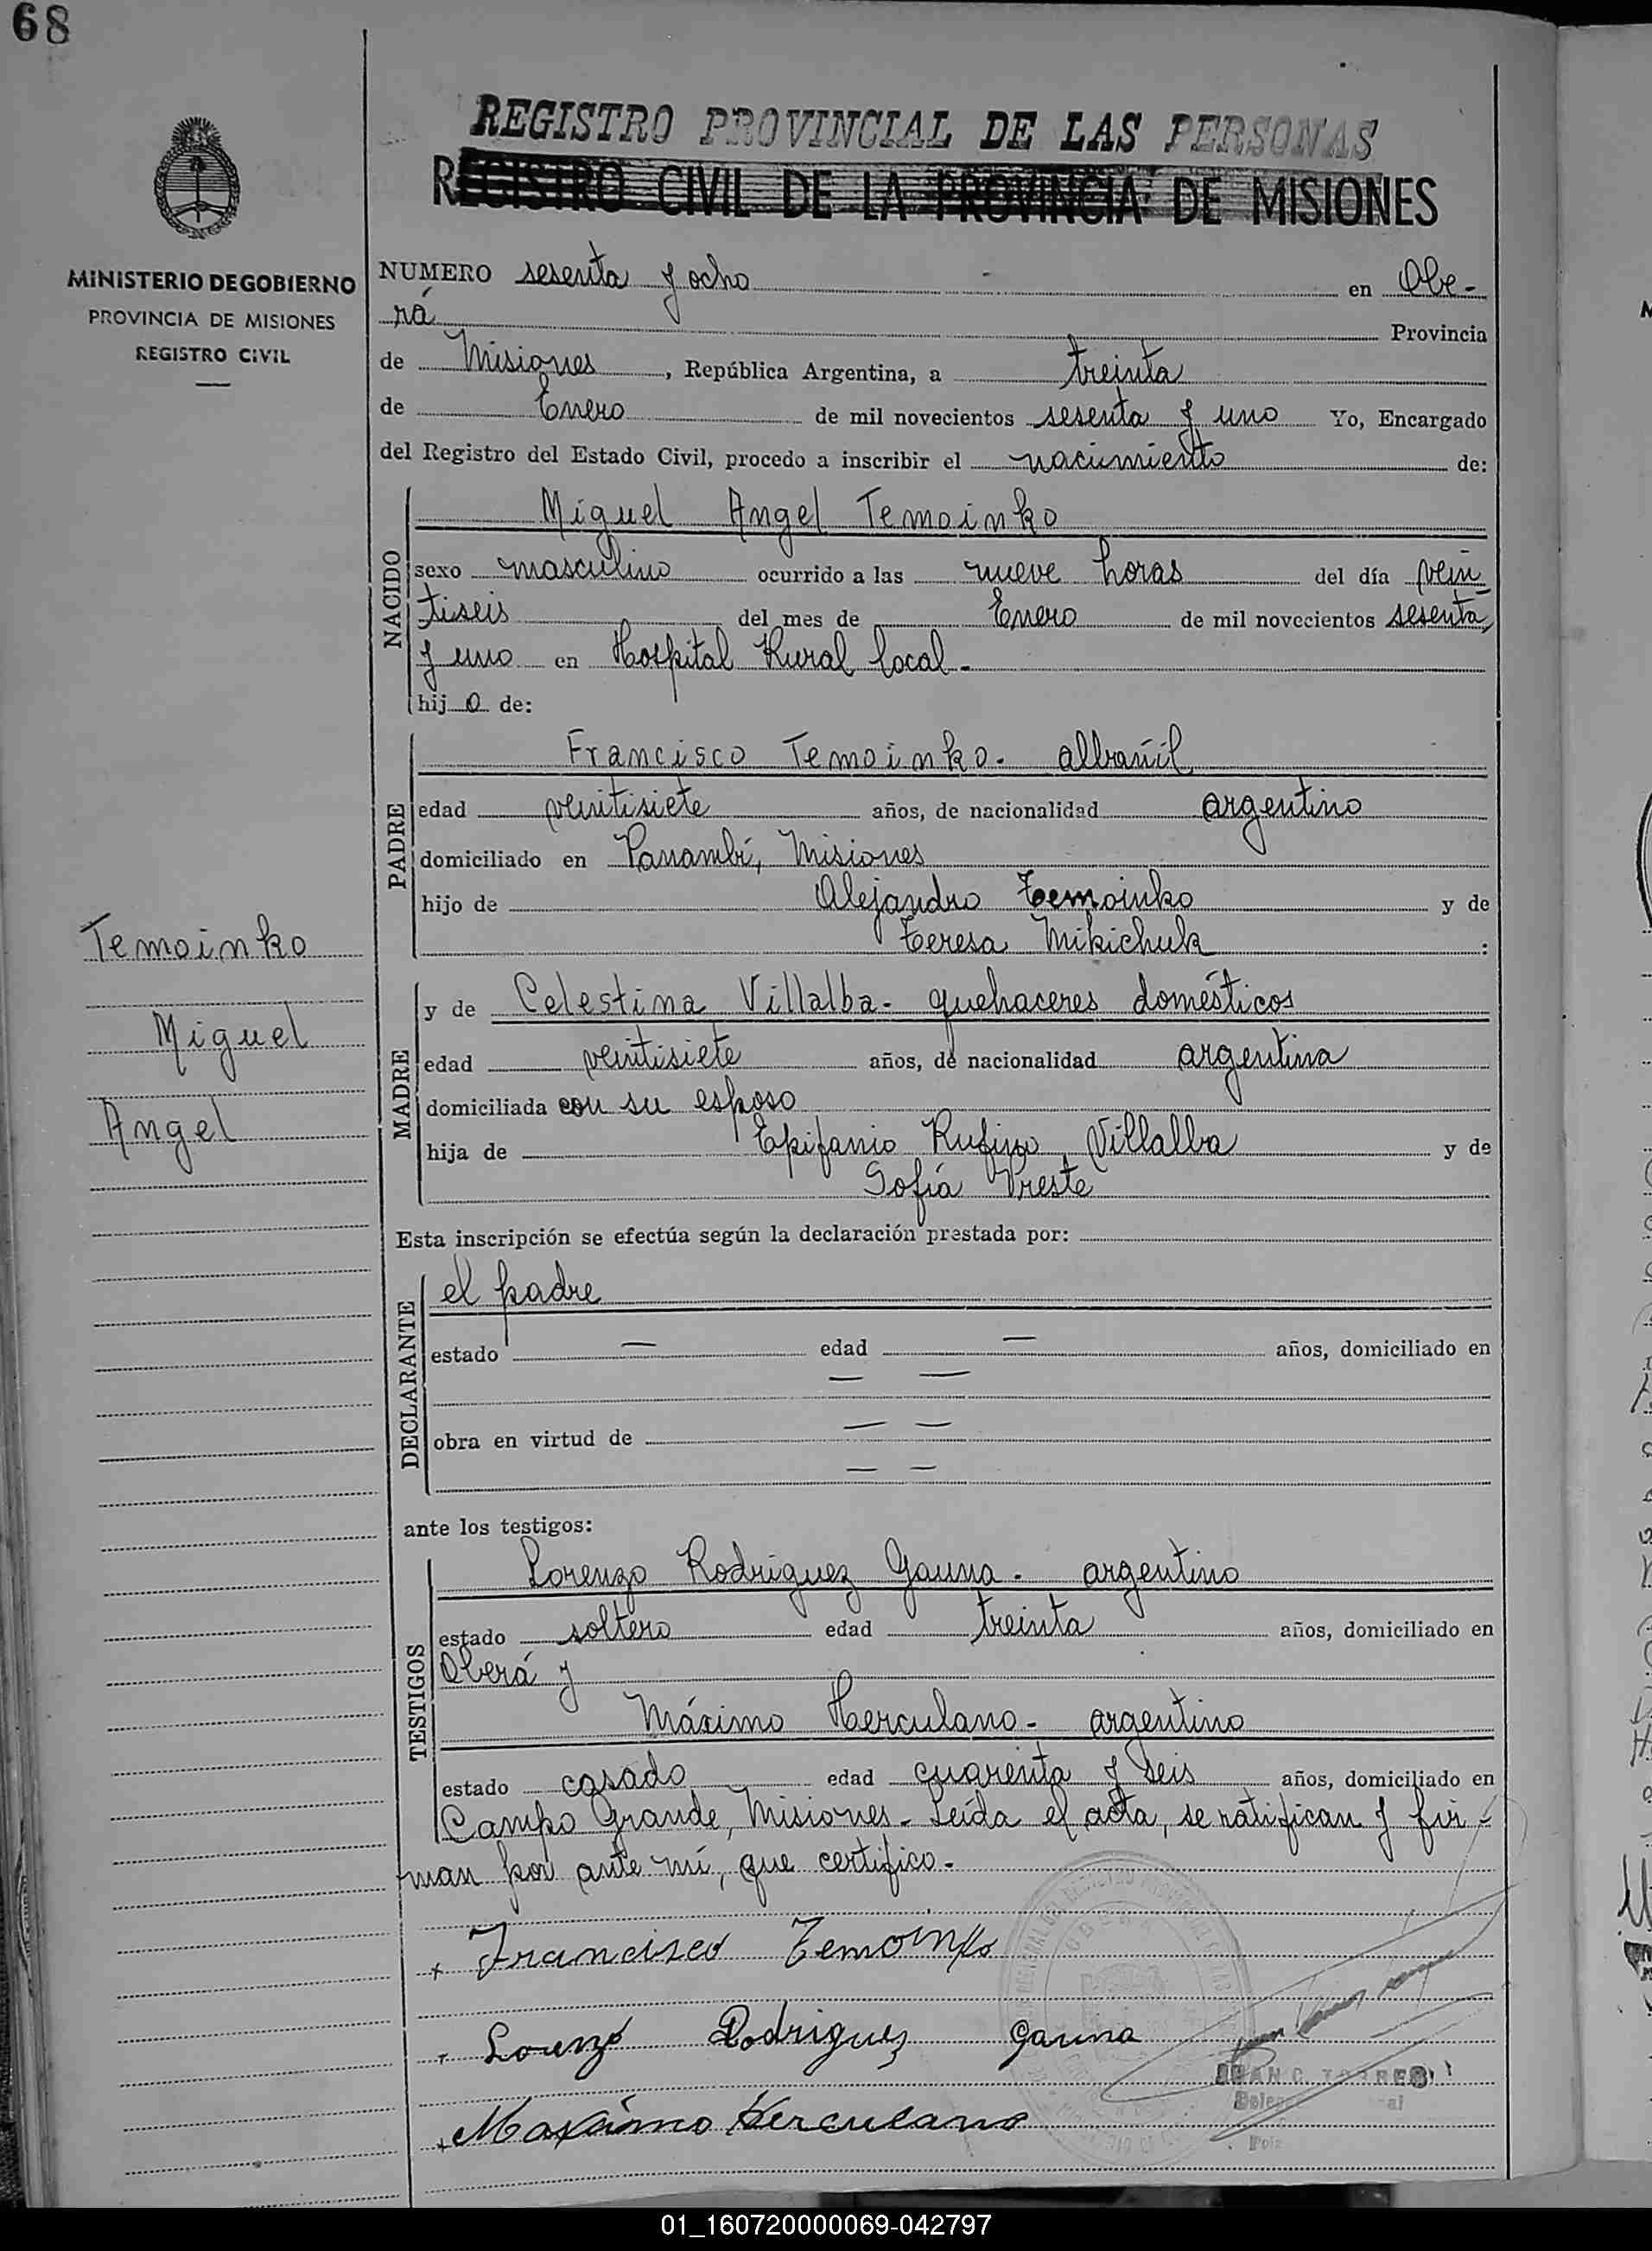 68
REGISTRO PROVINCIAL DE LAS PERSONAS
REGISTRO CIVIL DE LA PROVINCIA DE MISIONES
MINISTERIO DE GOBIERNO
PROVINCIA DE MISIONES
REGISTRO CIVIL
NUMERO sesenta y ocho en Obe-
rá Provincia
de Misiones, República Argentina, a treinta
de Enero de mil novecientos sesenta y uno Yo, Encargado
del Registro del Estado Civil, procedo a inscribir el nacimiento de:
NACIDO
Miguel Angel Temoinko
sexo masculino ocurrido a las nueve horas del día vein-
tiseis del mes de Enero de mil novecientos sesenta
y uno en Hospital Rural local-
hijo de:
PADRE
Francisco Temoinko. albañil
edad veintisiete años, de nacionalidad argentino
domiciliado en Panambí, Misiones
hijo de Alejandro Temoinko y de
Teresa Mikichuk :
Temoinko
Miguel
Angel
MADRE
y de Celestina Villalba- quehaceres domésticos
edad veintisiete años, de nacionalidad argentina
domiciliada con su esposo
hija de Epifanio Rufino Villalba y de
Sofía Preste
Esta inscripción se efectúa según la declaración prestada por:
DECLARANTE
el padre
estado — edad — años, domiciliado en
— —
obra en virtud de — —
— —
ante los testigos:
TESTIGOS
Lorenzo Rodriguez Gauna. argentino
estado soltero edad treinta años, domiciliado en
Oberá y
Máximo Herculano- argentino
estado casado edad cuarenta y seis años, domiciliado en
Campo Grande, Misiones- Leída el acta, se ratifican y fir-
man por ante mí, que certifico-
+ Francisco Temoinko
Lorenzo Rodriguez Gauna
TORRES
+ Maximo Herculano
01_160720000069-042797